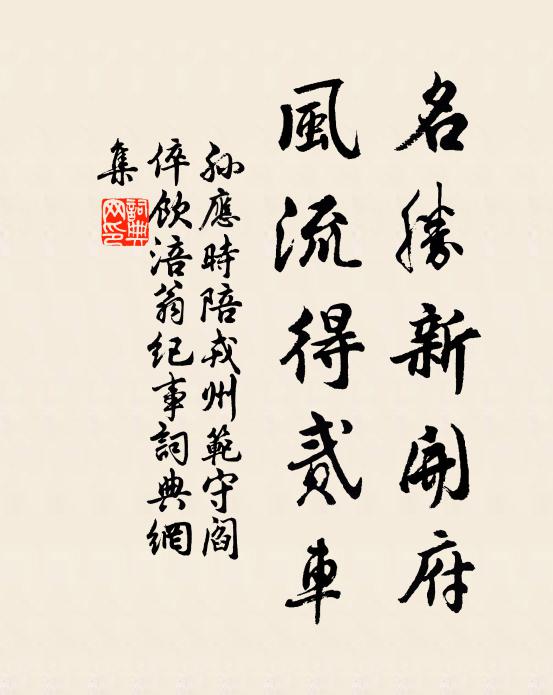 名勝新開府
風流得貳車
孫應時陪戎州範守閻
倅飲涪翁紀事詞典網
集
詞典網印